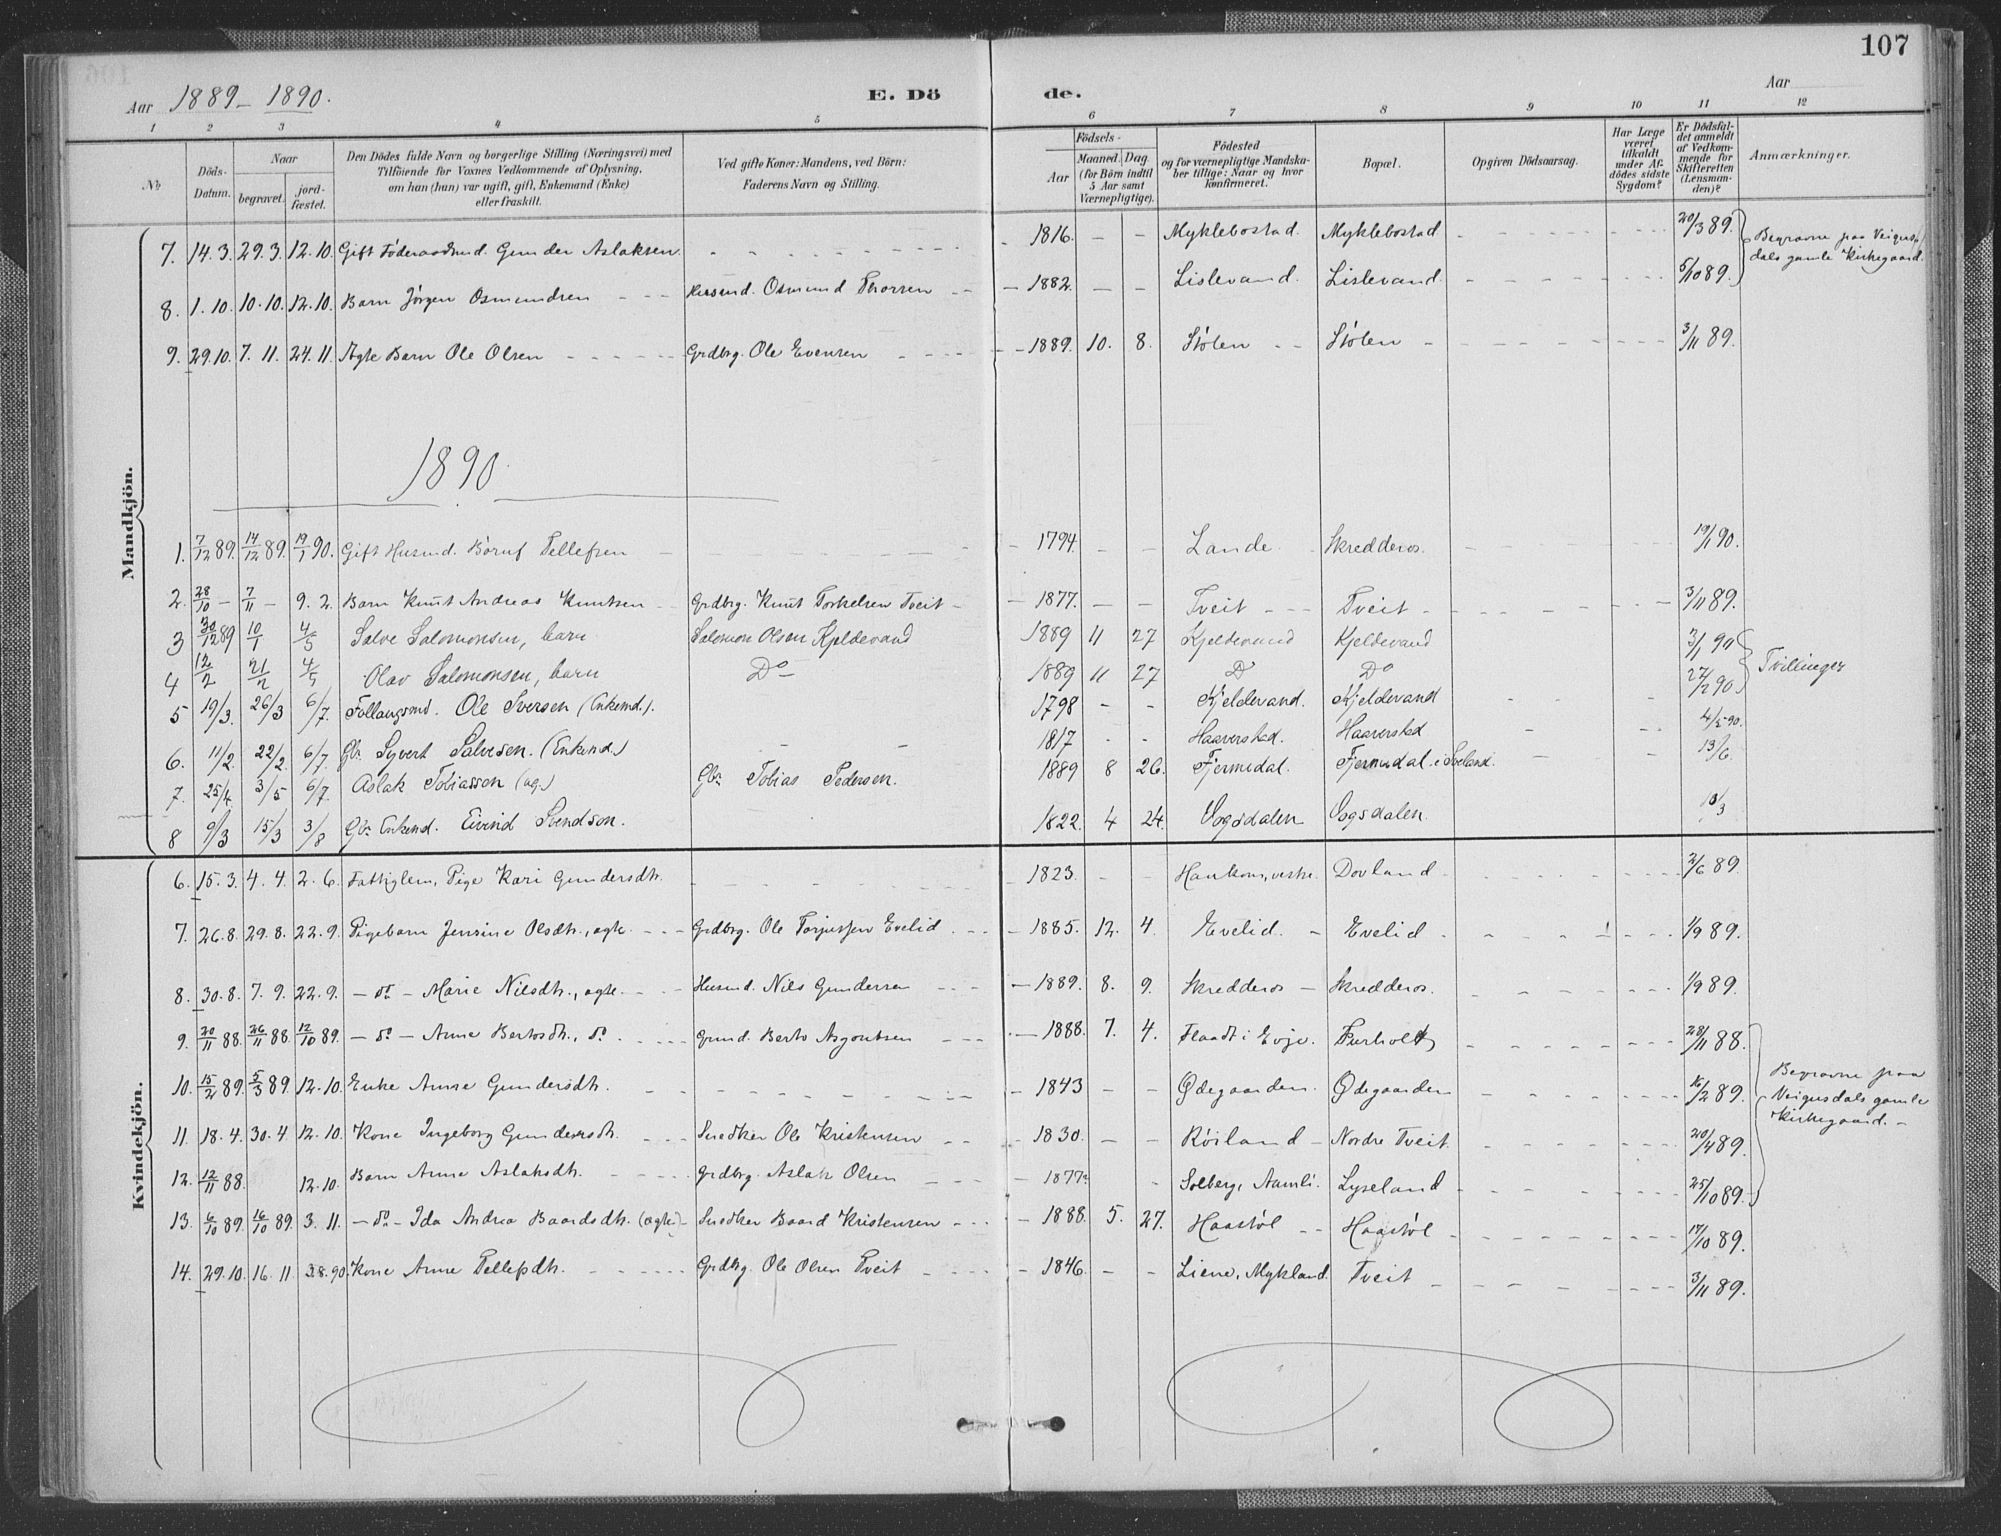 107
Aar 1889 - 1890.
E. Dö
de.
Aar
1 2 3 4 5 6 7 8 9 10 11 12
№
Döds-Datum.
Naar
begravet.
jord-fæstet.
Den Dödes fulde Navn og borgerlige Stilling (Næringsvei) med
Tilföiende for Voxnes Vedkommende af Oplysning,
om han (hun) var ugift, gift, Enkemand (Enke)
eller fraskilt.
Ved gifte Koner: Mandens, ved Börn:
Faderens Navn og Stilling.
Födsels-
Aar
Maaned. Dag.
(for Börn indtil
5 Aar samt
Værnepligtige).
Födested
og for værnepligtige Mandska-
ber tillige: Naar og hvor
konfirmeret.
Bopæl.
Opgiven Dödsaarsag.
Har Læge
været
tilkaldt
under Af-
dödes sidste
Sygdom?
Er Dödsfal-
det anmeldt
af Vedkom-
mende for
Skifteretten
(Lensman-
den)?
Anmærkninger.
Mandkjön.
7. 14.3. 29.3. 12.10. Gift Föderaadsmd. Gunder Aslaksen. 1816. Myklebostad. Myklebostad 20/3 89. Begravne paa Veigus-
dals gamle Kirkegaard.
8. 1.10. 10.10. 12.10. Barn Jörgen Osmundsen Husmd. Osmund Thorsen 1882. Lislevand. Lislevand. 5/10 89.
9. 29.10. 7.11. 24.11. Ægte Barn Ole Olsen Grdbrg. Ole Evensen 1889. 10. 8. Stölen Stölen 3/11 89.
1890
1. 7/12 89. 14/12 89. 19/1 90. Gift Husmd. Böruf Tellefsen 1794. Lande. Skredderos. 19/1 90.
2. 28/10 - 7/11 - 9.2. Barn Knut Andreas Knutsen Grdbrg. Knut Torkelsen Tveit 1877. Tveit Tveit 3/11 89.
3 30/12 89 10/1 4/5 Salve Salomonsen, barn Salomon Olsen Kjeldevand 1889 11 27 Kjeldevand Kjeldevand 3/1 90
4 12/2 21/2 4/5 Olav Salomonsen, barn Do 1889 11 27 D Do 27/2 90 Tvillinger
5 19/3. 26/3 6/7. Follaugsmd. Ole Iversen (Enkemd.). 1798 Kjeldevand. Kjeldevand
6. 11/2 22/2. 6/7 Gbr. Syvert Salvesen. (Enkemd.) 1817 Haaverstad. Haaverstad 4/5 90.
7. 25/4. 3/5 6/7. Aslak Tobiassen (æg.) Gbr. Tobias Pedersen. 1889 8 26. Fjermedal. Fjermedal i Iveland. 13/6.
8 9/3 15/3 3/8 Gbr. Enkemd. Eivind Svendson. 1822. 4 24. Vogsdalen Vogsdalen. 10/3
Kvindekjön.
6. 15.3. 4.4. 2.6. Fattiglem, Pige Kari Gundersdtr. 1823. Haukom, vestre. Dovland 2/6 89.
7. 26.8. 29.8. 22.9. Pigebarn Jensine Olsdtr., ægte Grdbrg. Ole Torjussen Evelid 1885. 12. 4. Evelid. Evelid 1/9 89.
8. 30.8. 7.9. 22.9. - do - Marie Nilsdtr., ægte Husmd. Nils Gundersen 1889. 8. 9. Skredderos Skredderos. 1/9 89.
9. 20/11 88. 26/11 88. 12/10 89. - do - Anne Bertosdtr., do. Grmd. Berto Asgoutsen 1888. 7. 4. Flaadt i Evje. Furholt 28/11 88.
10. 15/2 89. 5/3 89. 12.10. Enke Anne Gundersdtr. 1843 Ødegaarden. Ødegaarden 16/2 89. Begravne paa
Veigusdals gamle
Kirkegaard.
11. 18.4. 30.4. 12.10. Kone Ingeborg Gundersdtr. Snedker Ole Kristensen 1830. Röiland Nordre Tveit. 20/4 89.
12. 12/11 88. 12.10. Barn Anne Aslaksdtr. Grdbrg. Aslak Olsen 1877. Solberg, Aamli. Lyseland 25/10 89.
13. 6/10 89. 16/10 89. 3.11. - do - Ida Andrea Baardsdtr. (ægte) Snedker Baard Kristensen 1888. 5. 27. Haastöl Haastöl 17/10 89.
14. 29.10. 16.11. 3.8.90. Kone Anne Tellefsdtr. Grdbrg. Ole Olsen Tveit 1846. Liene, Mykland. Tveit 3/11 89.